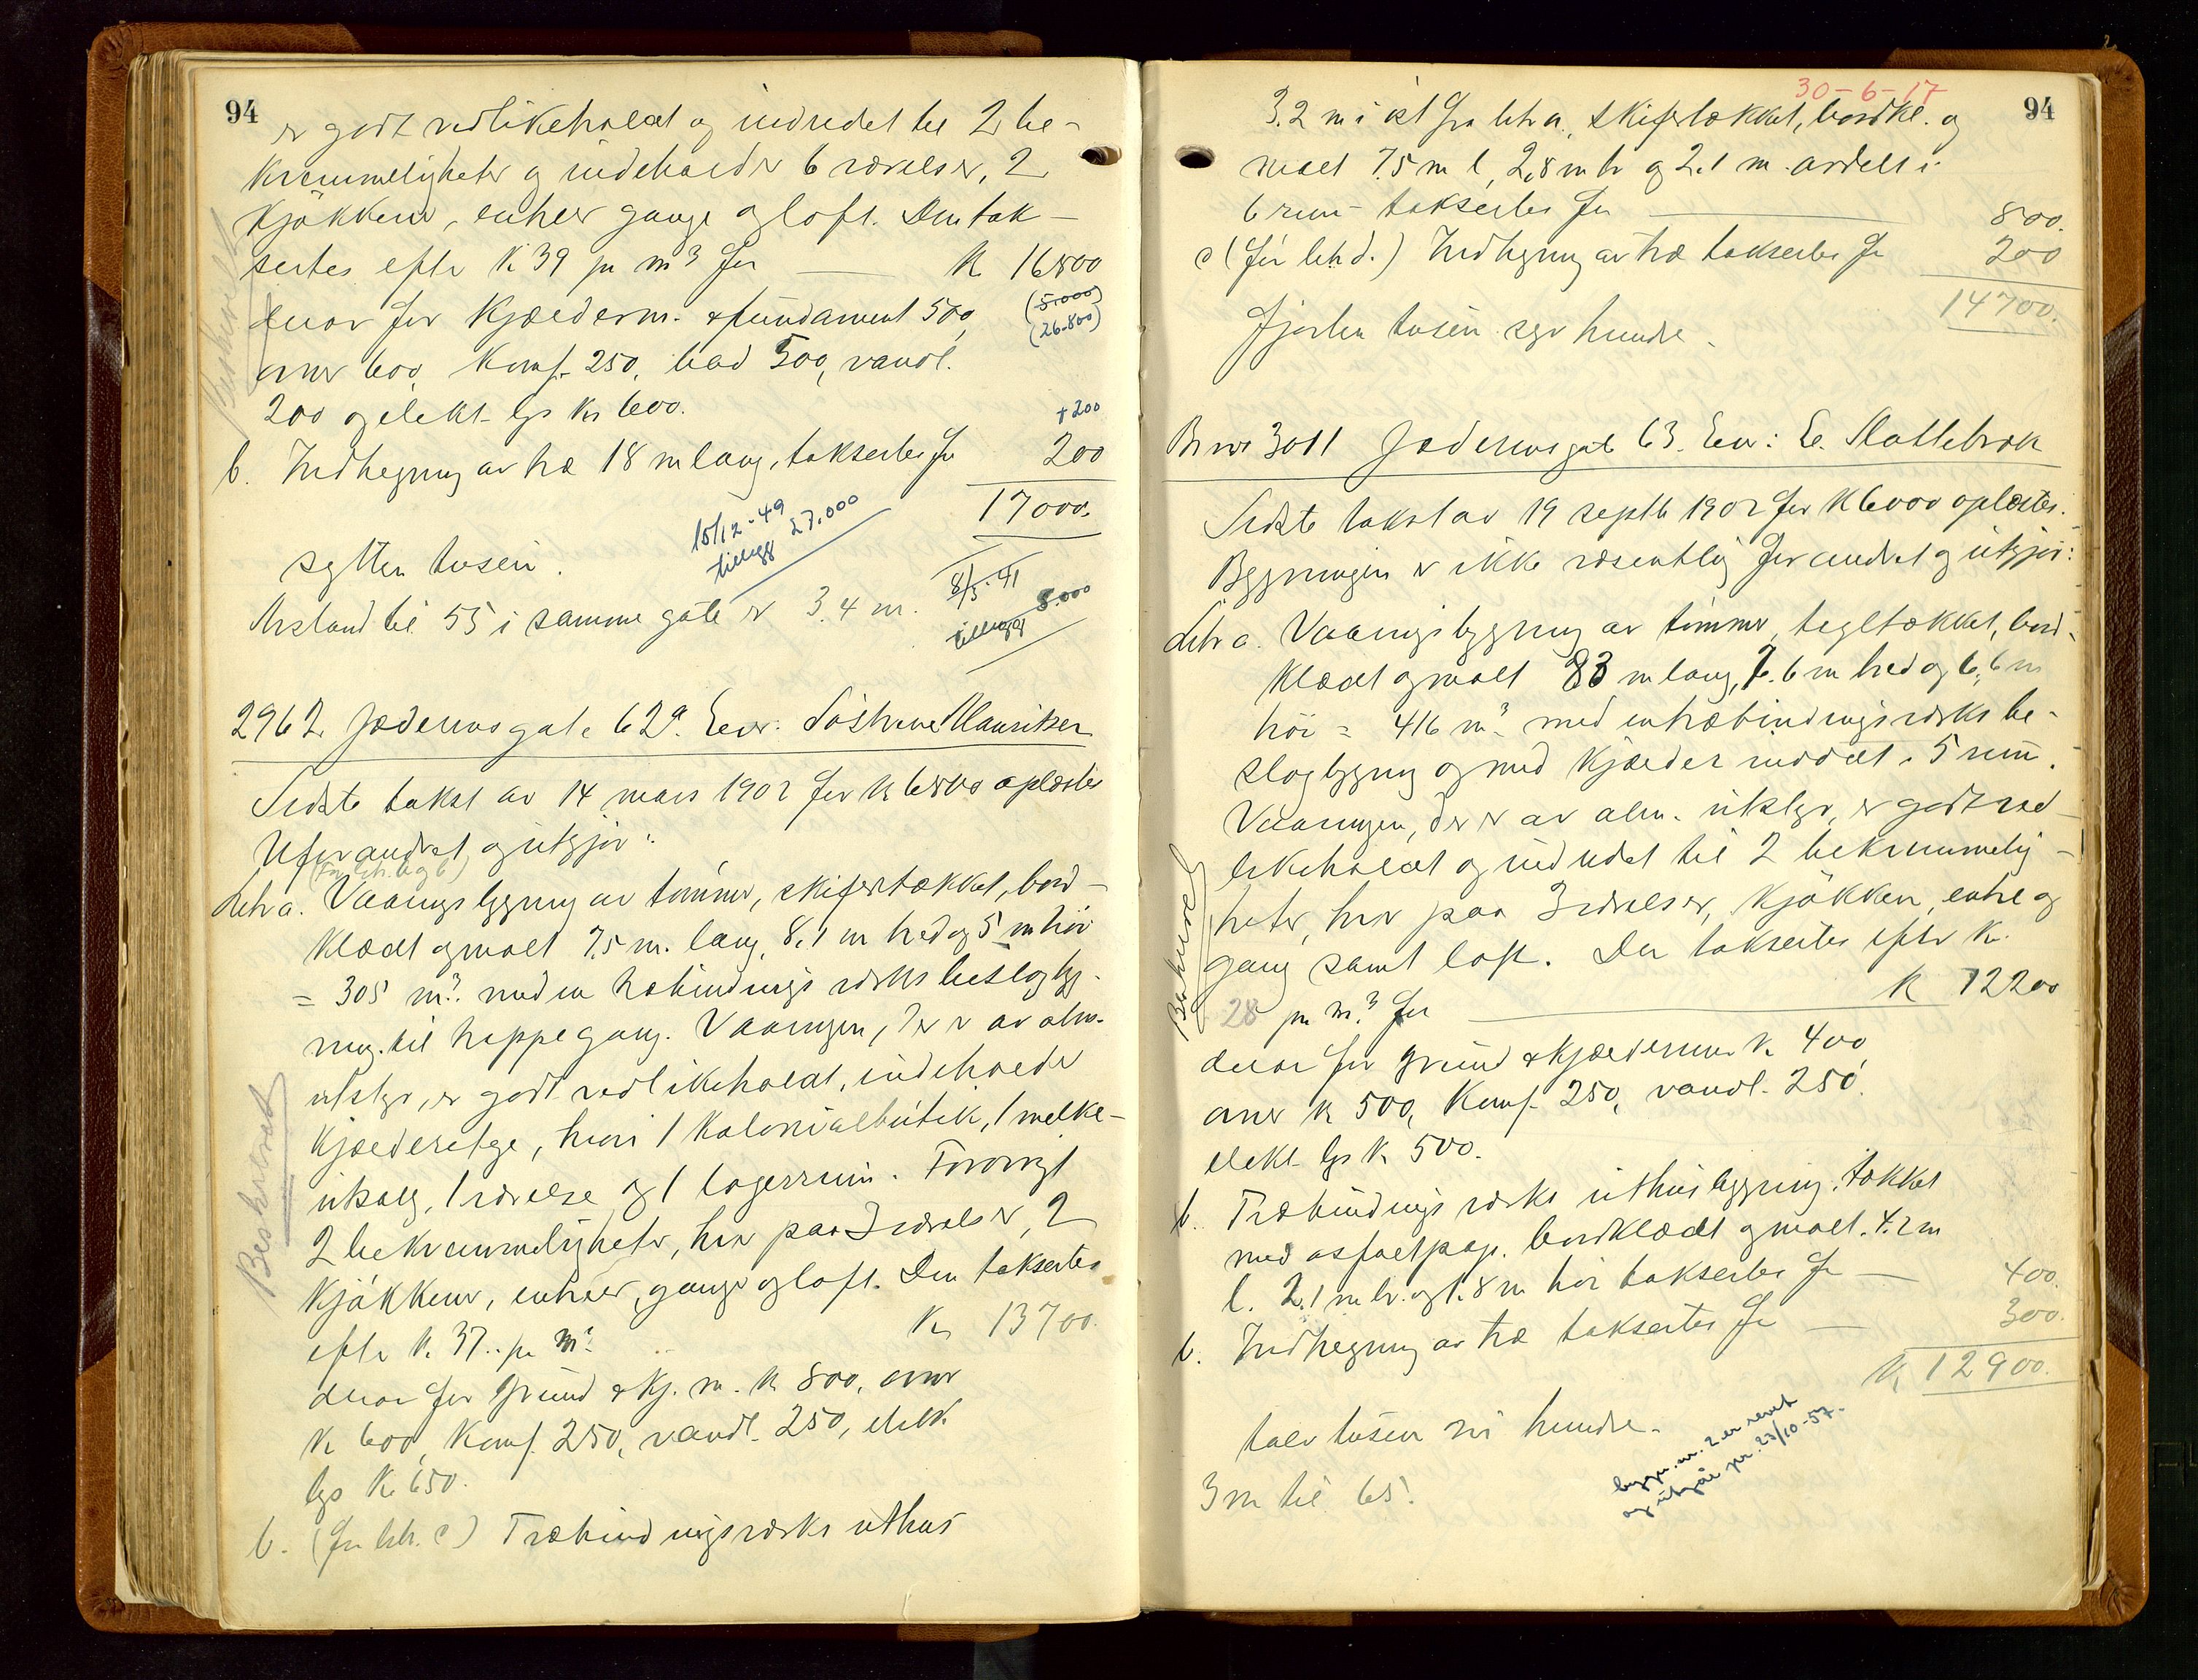 94
er godt vedlikeholdt og indredet til 2 be-
kvemmeligheter og indeholder 6 værelser, 2
kjøkkener, entreer gange og loft. Den tak-
sertes efter K 39 pr m³ for K 16800
derav for Kjælderm. & fundament 500, (5.000)
(26.800)
ovner 600, Komf. 250, bad 500, vandl.
200 og elekt. lys Kr 600.
+200
b. Indhegning av træ 18 m lang, taksertes for 200
17000.
15/12-49
tillegg 27,000
sytten tusen.
8/5-41
tillegg 8.000
Avstand til 55 i samme gate er 3.4 m.
2962. Jæderensgate 62a. Eier: Søstrene Mauritzen
Sidste takst av 14 mars 1902 for K 6800 oplæstes
Uforandret og utgjør:
(For litr. a og b)
Litr a. Vaaningsbygning av tømmer, skifertækket, bord-
klædt og malt 7,5 m. lang, 8,1 m bred og 5 m høi
= 305 m³. med en træbindings verks beslagbyg-
ning til trappegang. Vaaningen, der er av alm.
utstyr, er godt vedlikeholdt, indeholder
kjælderetage, hvori 1 Kolonialbutik, 1 melke-
utsalg, 1 værelse og 1 lagerrum. Forøvrigt
2 bekvemmeligheter, hver paa 3 værelser, 2
kjøkkener, entreer, gange og loft. Den taksertes
efter K. 37.. pr m³ Kr 13700.
derav for Grund & Kj. m. K 800, ovner
K 600, Komf. 250, vandl. 250, elek.
lys K. 650.
b. (før litr. c) Træbindingsverks uthus
Beskrevet
30-6-17
94
3.2 m i øst fra litr a., skifertækket, bordkl. og
malt 7.5 m l, 2,8 m br og 2.1 m. avdelt i
6 rum - taksertes for 800.
c (før litr d.) Indhegning av træ taksertes for 200
14700.
Fjorten tusen syv hundre.
Br nr 3011 Jæderensgate 63. Eier: E. Slottebrok
Sidste takst av 19 septb 1902 for K 6000 oplæstes.
Bygningen er ikke væsentlig forandret og utgjør:
Litr a. Vaaningsbygning av tømmer, tegltækket, bord-
klædt og malt 83 m lang, 7.6 m bred og 6,6 m
høi = 416 m³ med en træbindingsverks be-
slagbygning og med kjælder inddelt i 5 rum.
Vaaningen, der er av alm. utstyr, er godt ved-
likeholdt og indredet til 2 bekvemmelig-
heter, hver paa 3 værelser, kjøkken, entre og
gang samt loft. Den taksertes efter K.
28 pr m³ for K 12200
Beskrevet
derav for grund & kjældermur K. 400,
ovner K 500, Komf. 250, vandl. 250.
elekt. lys K. 500.
b. Træbindings verks uthusbygning, tækket
med asfaltpap. bordklædt og malt. 4.2 m
l. 2.1 m br. og 1.8 m høi taksertes for 400.
b. Indhegning av træ taksertes for 300.
K 12900.
tolv tusen ni hundre.
3 m til 65.
bygn. nr. 2 er revet
og utgår pr. 23/10-57.